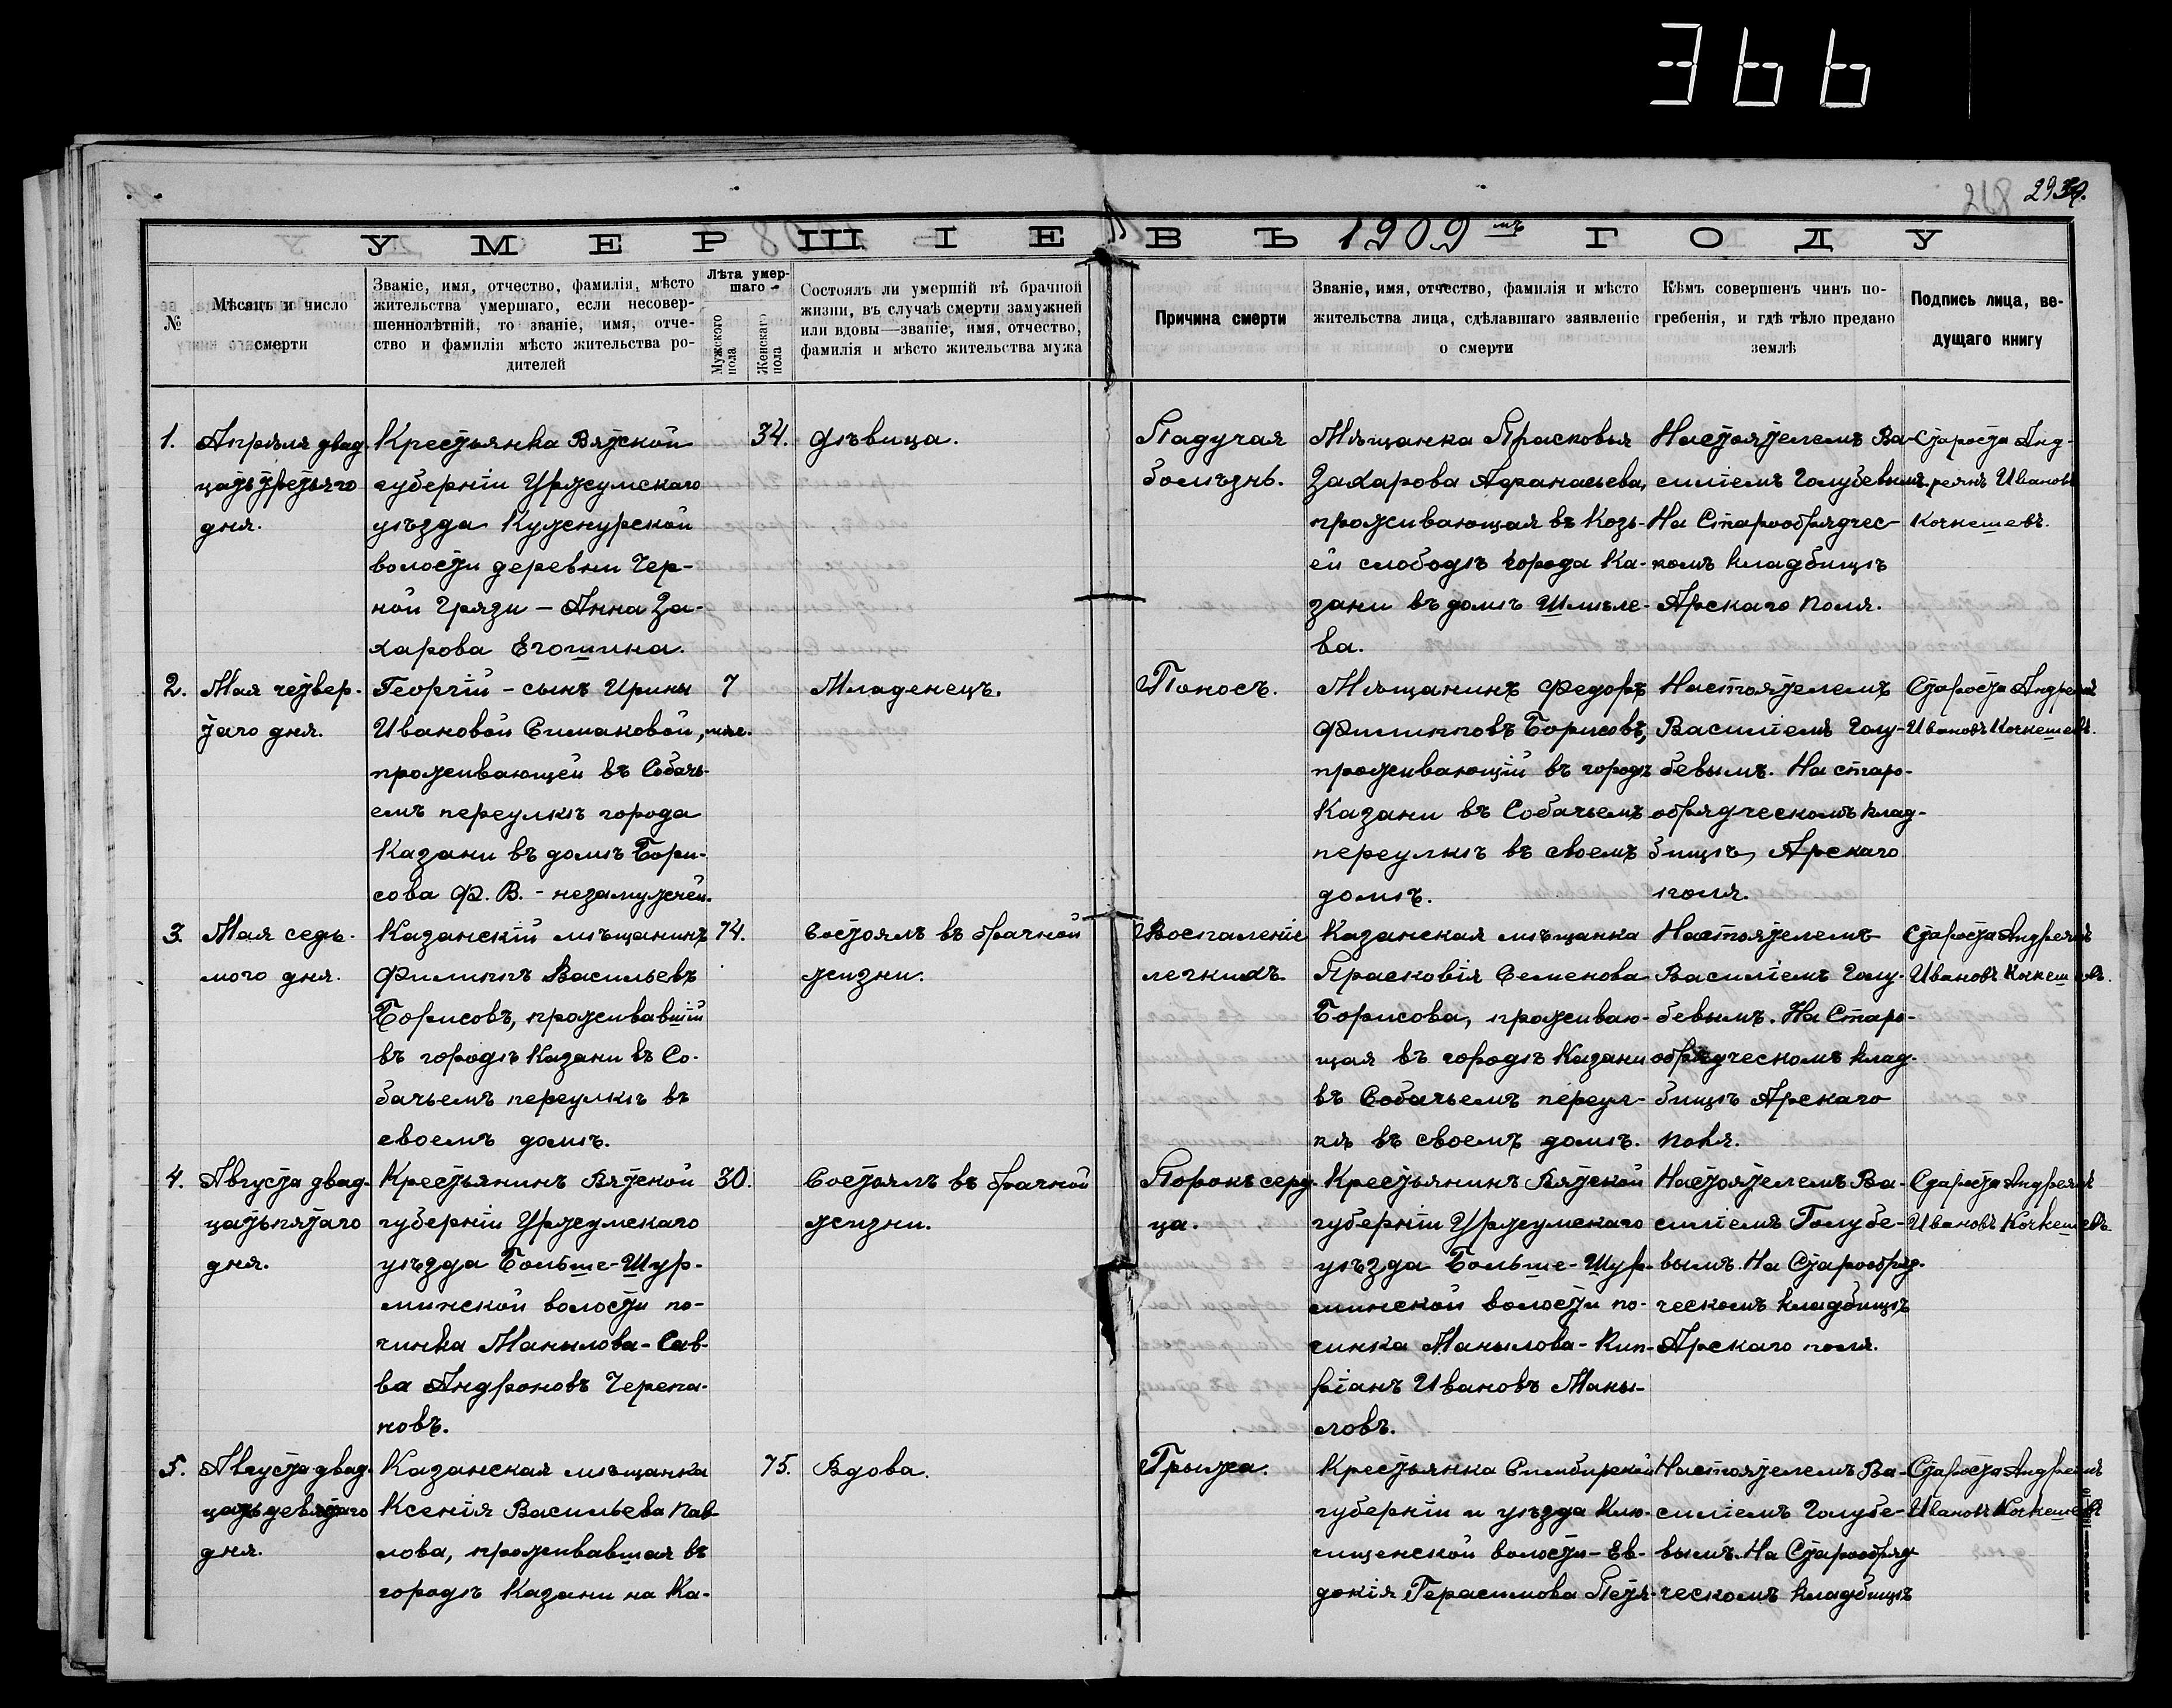 366
218 2939.
УМЕРШІЕ ВЪ 1909мъ ГОДУ
№
Мѣсяцъ и число
смерти
Званіе, имя, отчество, фамилія, мѣсто
жительства умершаго, если несовер-
шеннолѣтній, то званіе, имя, отче-
ство и фамилія мѣсто жительства ро-
дителей
Лѣта умер-
шаго
Мужского
пола
Женскаго
пола
Состоялъ ли умершій въ брачной
жизни, въ случаѣ смерти замужней
или вдовы—званіе, имя, отчество,
фамилія и мѣсто жительства мужа
Причина смерти
Званіе, имя, отчество, фамилія и мѣсто
жительства лица, сдѣлавшаго заявленіе
о смерти
Кѣмъ совершенъ чинъ по-
гребенія, и гдѣ тѣло предано
землѣ
Подпись лица, ве-
дущаго книгу
1.
Апрѣля двад-
цать третьяго
дня.
Крестьянка Вятской
губерніи Уржумскаго
уѣзда Кужнурской
волости деревни Чер-
ной Грязи – Анна За-
харова Егошина.
34.
Дѣвица.
Падучая
болѣзнь.
Мѣщанка Прасковья
Захарова Афанасьева,
проживающая въ Козь-
ей слободѣ города Ка-
зани въ домѣ Шмѣле-
ва.
Настоятелемъ Ва-
силіемъ Голубевымъ.
На Старообрядчес-
комъ кладбищѣ
Арскаго поля.
Староста Анд-
реянъ Ивановъ
Кочнешевъ.
2.
Мая четвер-
таго дня.
Георгій – сынъ Ирины
Ивановой Симаковой,
проживающей въ Собачь-
емъ переулкѣ города
Казани въ домѣ Бори-
сова Ф. В. – незамужней.
7
мѣс.
Младенецъ.
Поносъ.
Мѣщанинъ Федоръ
Филипповъ Борисовъ,
проживающій въ городѣ
Казани въ Собачьемъ
переулкѣ въ своемъ
домѣ.
Настоятелемъ
Василіемъ Голу-
бевымъ. На старо-
обрядческомъ клад-
бищѣ, Арскаго
поля.
Староста Андреянъ
Ивановъ Кочнешевъ.
3.
Мая седь-
мого дня.
Казанскій мѣщанинъ
Филиппъ Васильевъ
Борисовъ, проживавшій
въ городѣ Казани въ Со-
бачьемъ переулкѣ въ
своемъ домѣ.
74.
Состоялъ въ брачной
жизни.
Воспаленіе
легкихъ.
Казанская мѣщанка
Прасковія Семенова
Борисова, проживаю-
щая въ городѣ Казани
въ Собачьемъ переул-
кѣ въ своемъ домѣ.
Настоятелемъ
Василіемъ Голу-
бевымъ. На Старо-
обрядческомъ клад-
бищѣ Арскаго
поля.
Староста Андреянъ
Ивановъ Кочнешевъ.
4.
Августа двад-
цать пятаго
дня.
Крестьянинъ Вятской
губерніи Уржумскаго
уѣзда Больше-Шур-
минской волости по-
чинка Манылова – Сав-
ва Андроновъ Черепа-
новъ.
30.
Состоялъ въ брачной
жизни.
Порокъ серд-
ца.
Крестьянинъ Вятской
губерніи Уржумскаго
уѣзда Больше-Шур-
минской волости по-
чинка Манылова – Кип-
ріанъ Ивановъ Маны-
ловъ.
Настоятелемъ Ва-
силіемъ Голубе-
вымъ. На Старообряд-
ческомъ кладбищѣ
Арскаго поля.
Староста Андреянъ
Ивановъ Кочнешевъ.
5.
Августа двад-
цать девятаго
дня.
Казанская мѣщанка
Ксенія Васильева Пав-
лова, проживавшая въ
городѣ Казани на Ка-
75.
Вдова.
Грыжа.
Крестьянка Симбирской
губерніи и уѣзда Клю-
чищенской волости – Ев-
докія Герасимова Петя-
Настоятелемъ Ва-
силіемъ Голубе-
вымъ. На Старообряд-
ческомъ кладбищѣ
Староста Андреянъ
Ивановъ Кочнешевъ